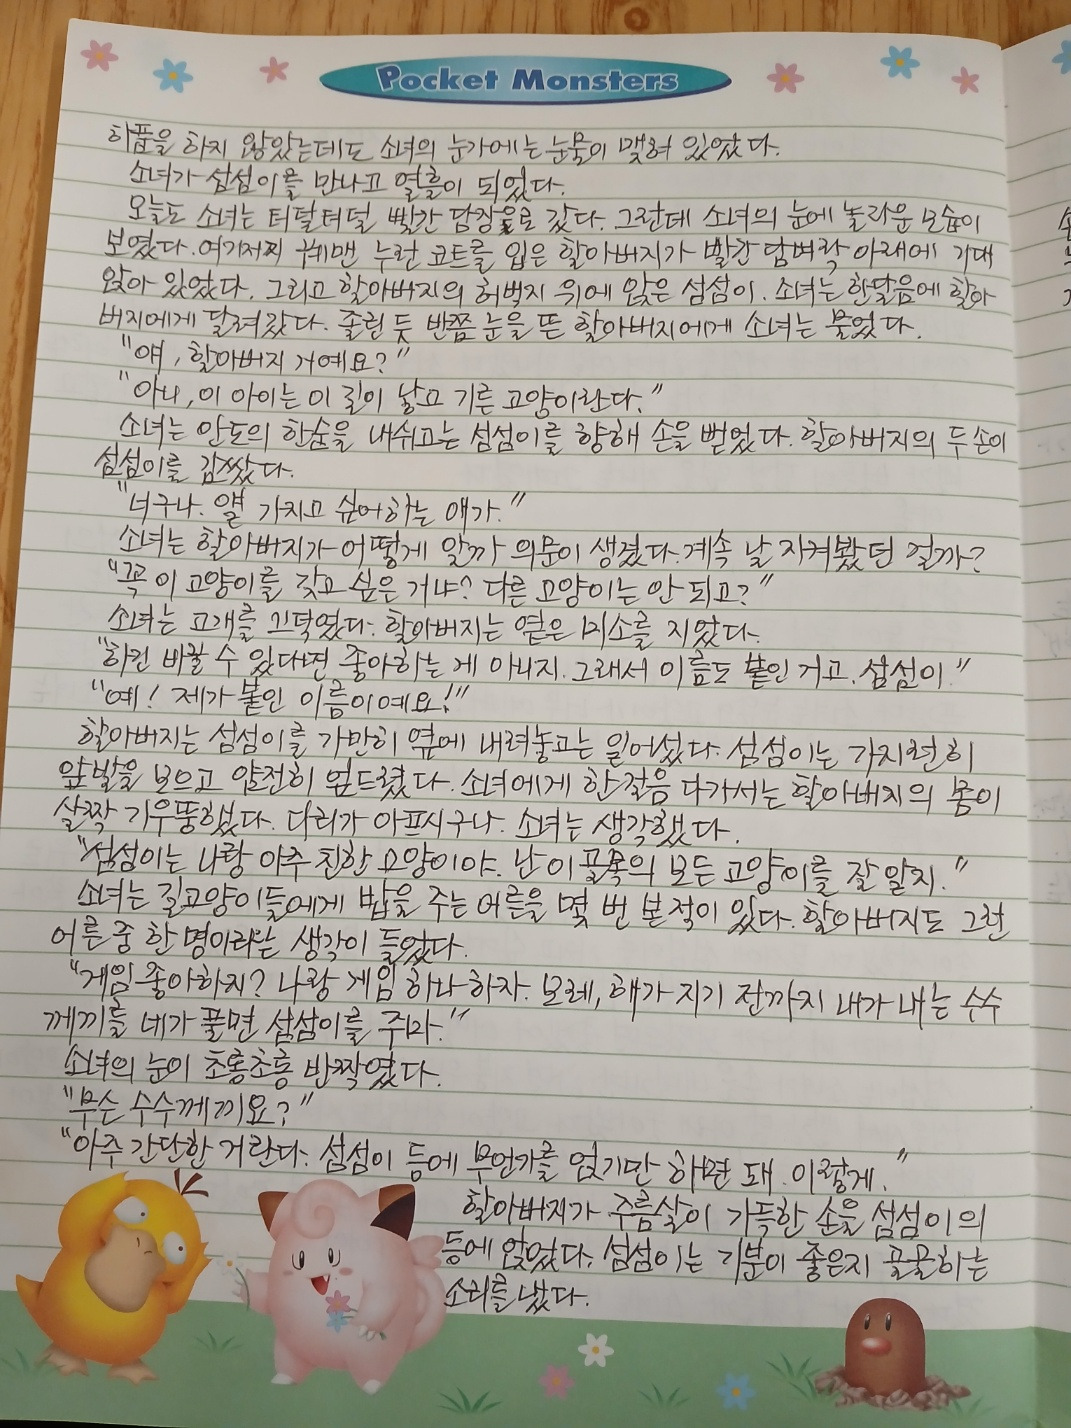 Pocket Monsters
하품을 하지 않았는데도 소녀의 눈가에는 눈물이 맺혀 있었다.
소녀가 섬섬이를 만나고 열흘이 되었다.
오늘도 소녀는 터덜터덜 빨간 담장을로 갔다. 그런데 소녀의 눈에 놀라운 모습이
보였다. 여기저찌 꿰맨 누런 코트를 입은 할아버지가 빨간 담벼락 아래에 기대
앉아 있었다. 그리고 할아버지의 허벅지 위에 앉은 섬섬이. 소녀는 한달음에 할아
버지에게 달려갔다. 졸린 듯 반쯤 눈을 뜬 할아버지에게 소녀는 물었다.
"얘, 할아버지 거예요?"
"아니, 이 아이는 이 길이 낳고 기른 고양이란다."
소녀는 안도의 한숨을 내쉬고는 섬섬이를 향해 손을 뻗었다. 할아버지의 두 손이
섬섬이를 감쌌다.
"너구나. 얠 가지고 싶어하는 애가."
소녀는 할아버지가 어떻게 알까 의문이 생겼다. 계속 날 지켜봤던 걸까?
"꼭 이 고양이를 갖고 싶은 거냐? 다른 고양이는 안 되고?"
소녀는 고개를 끄덕였다. 할아버지는 옅은 미소를 지었다.
"하긴 바꿀 수 있다면 좋아하는 게 아니지. 그래서 이름도 붙인 거고. 섬섬이."
"예! 제가 붙인 이름이예요!"
할아버지는 섬섬이를 가만히 옆에 내려놓고는 일어섰다. 섬섬이는 가지런히
앞발을 모으고 얌전히 엎드렸다. 소녀에게 한 걸음 다가서는 할아버지의 몸이
살짝 기우뚱했다. 다리가 아프시구나. 소녀는 생각했다.
"섬섬이는 나랑 아주 친한 고양이야. 난 이 골목의 모든 고양이를 잘 알지."
소녀는 길고양이들에게 밥을 주는 어른을 몇 번 본 적이 있다. 할아버지도 그런
어른 중 한 명이라는 생각이 들었다.
"게임 좋아하지? 나랑 게임 하나 하자. 모레, 해가 지기 전까지 내가 내는 수수
께끼를 네가 풀면 섬섬이를 주마."
소녀의 눈이 초롱초롱 반짝였다.
"무슨 수수께끼요?"
"아주 간단한 거란다. 섬섬이 등에 무언가를 얹기만 하면 돼. 이렇게."
할아버지가 주름살이 가득한 손을 섬섬이의
등에 얹었다. 섬섬이는 기분이 좋은지 골골하는
소리를 냈다.